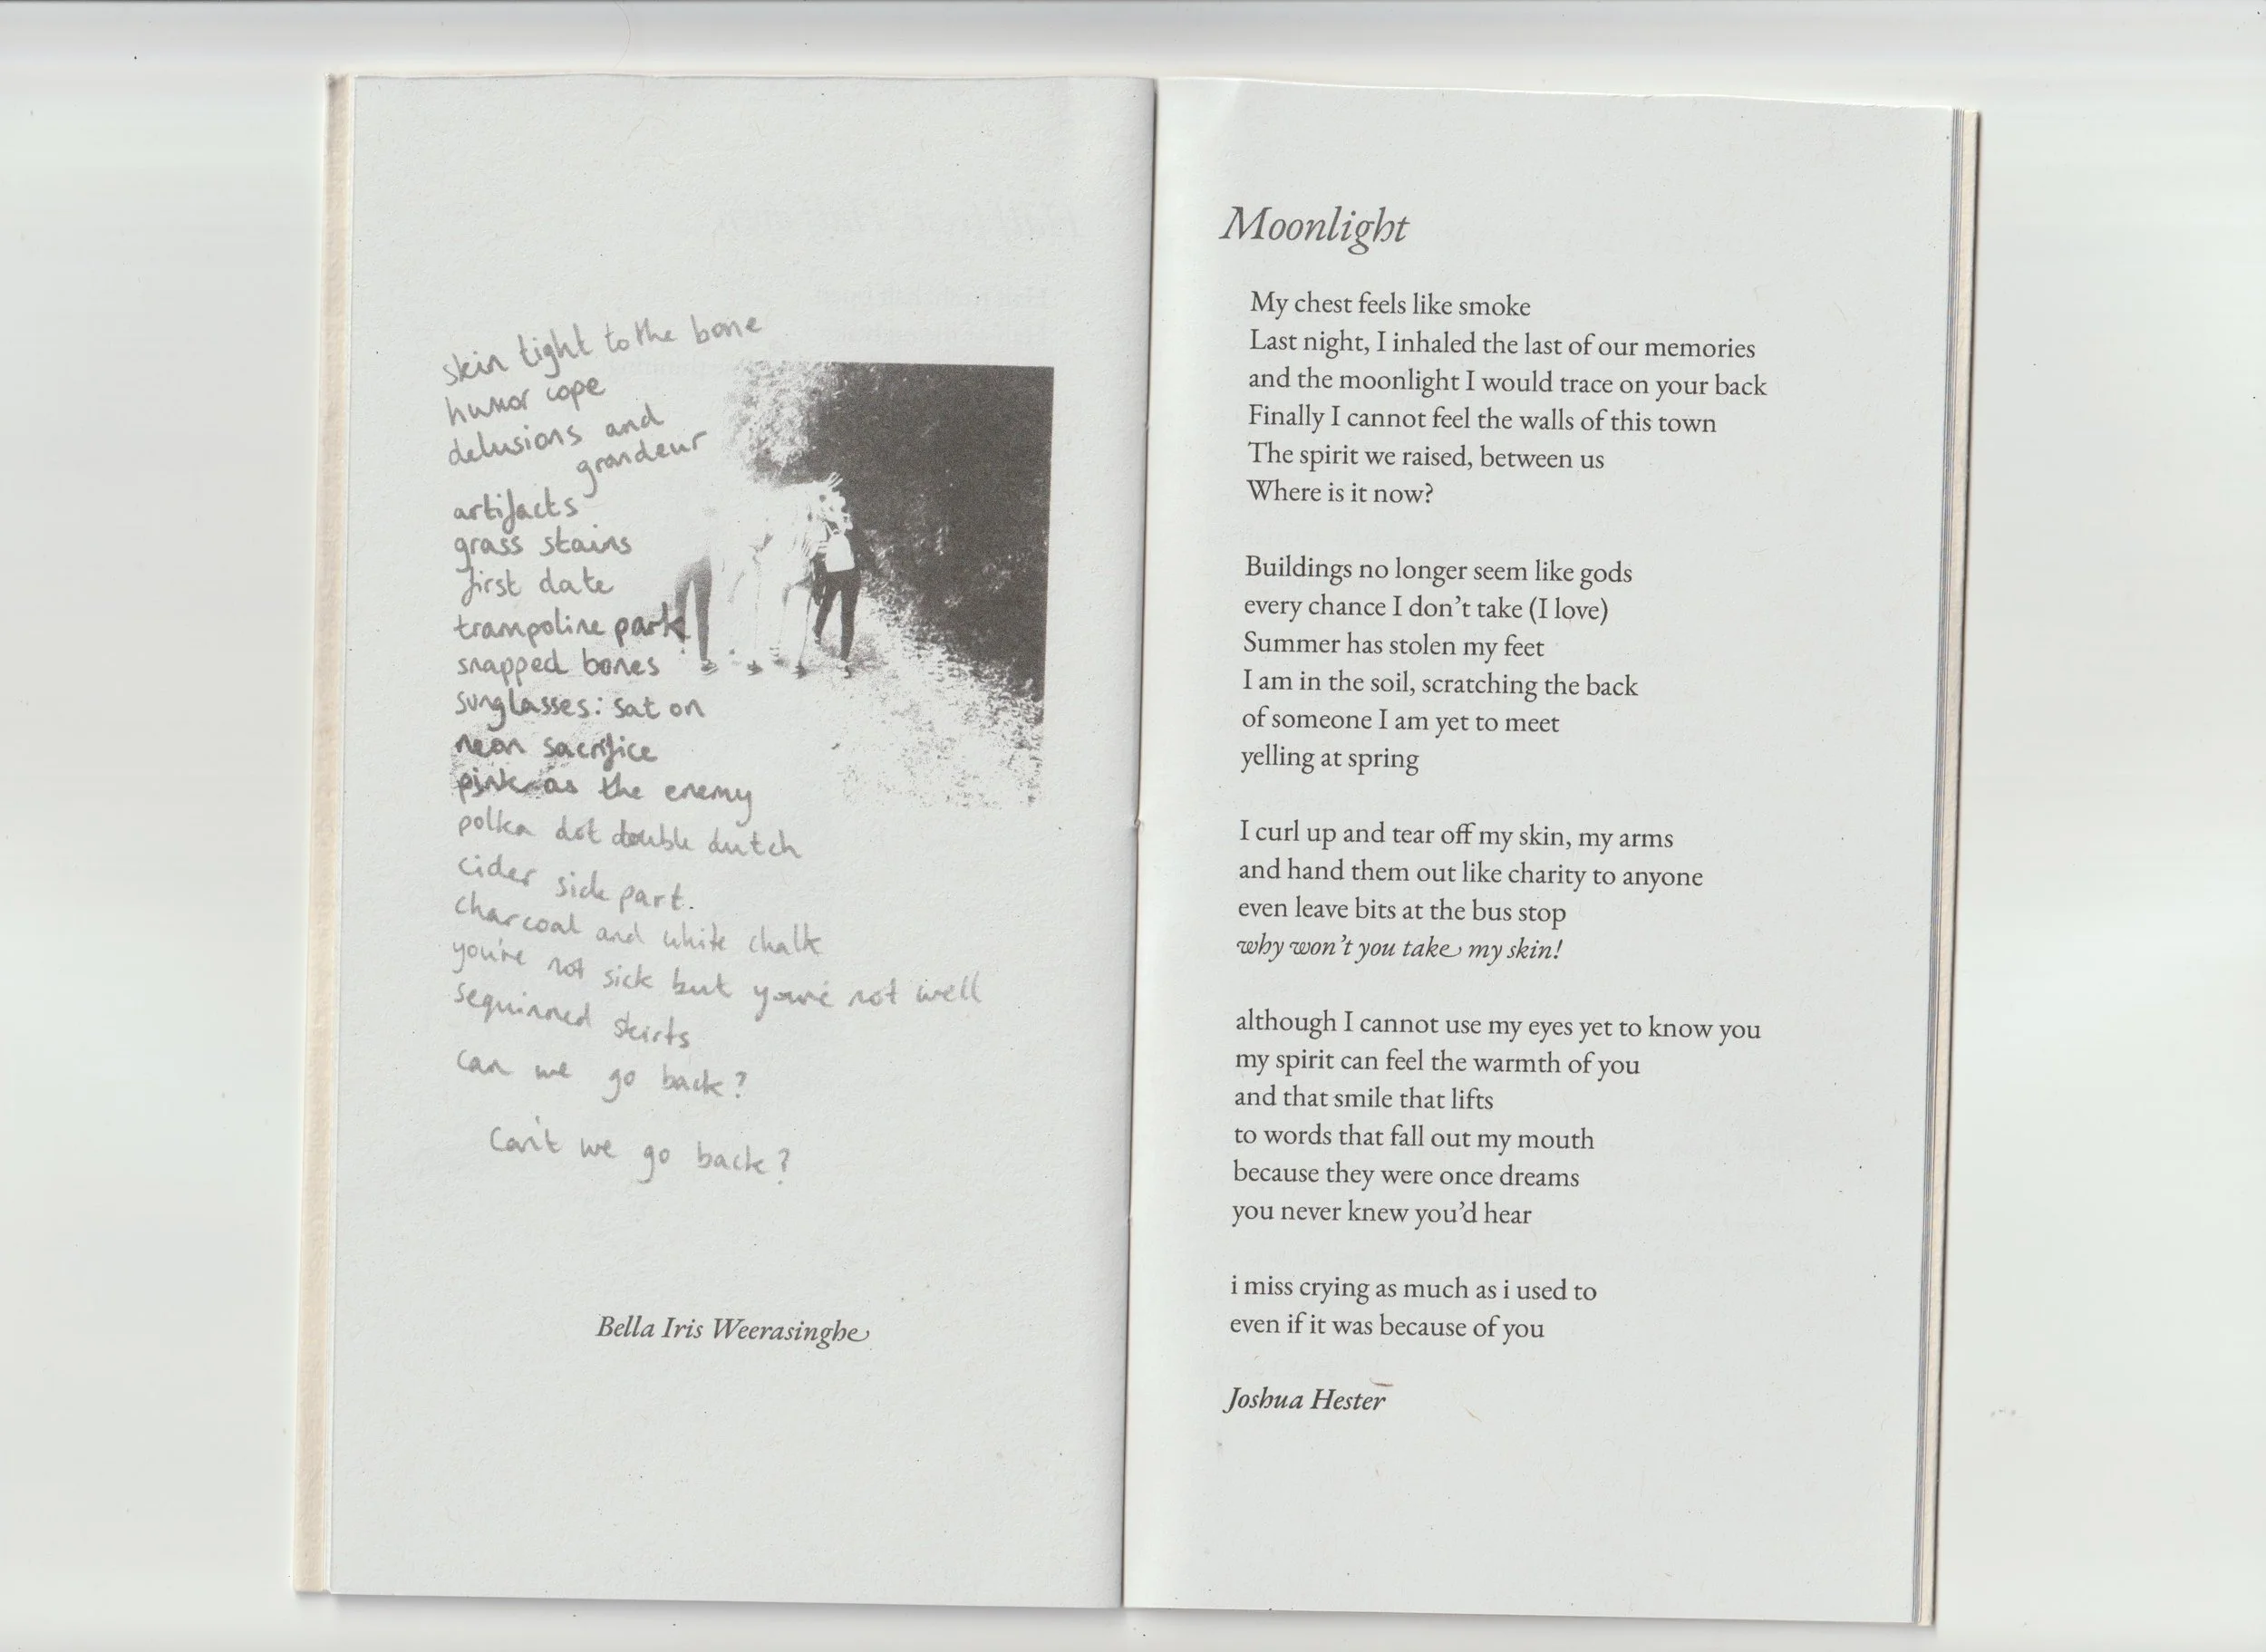 skin tight to the bone
humor cope
delusions and
grandeur
artifacts
grass stains
first date
trampoline park
snapped bones
sunglasses: sat on
neon sacrifice
pink as the enemy
polka dot double dutch
cider side part.
charcoal and white chalk
you're not sick but you're not well
sequinned skirts
can we go back?
can't we go back?
Bella Iris Weerasinghe
Moonlight
My chest feels like smoke
Last night, I inhaled the last of our memories
and the moonlight I would trace on your back
Finally I cannot feel the walls of this town
The spirit we raised, between us
Where is it now?
Buildings no longer seem like gods
every chance I don't take (I love)
Summer has stolen my feet
I am in the soil, scratching the back
of someone I am yet to meet
yelling at spring
I curl up and tear off my skin, my arms
and hand them out like charity to anyone
even leave bits at the bus stop
why won't you take my skin!
although I cannot use my eyes yet to know you
my spirit can feel the warmth of you
and that smile that lifts
to words that fall out my mouth
because they were once dreams
you never knew you'd hear
i miss crying as much as i used to
even if it was because of you
Joshua Hester